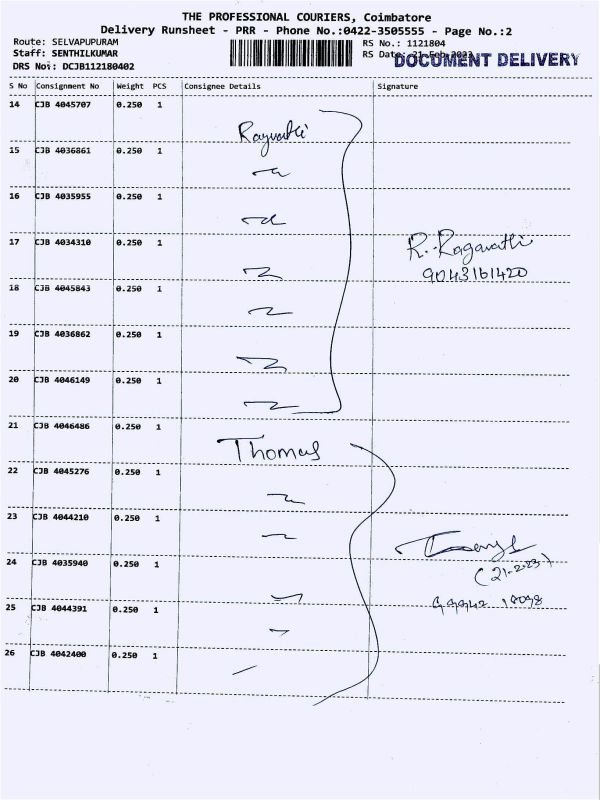 THE PROFESSIONAL COURIERS, Coimbatore
Delivery Runsheet - PRR - Phone No.:0422-3505555 - Page No.:2
Route: SELVAPUPURAM
RS No.: 1121804
Staff: SENTHILKUMAR
RS Date: 21-Feb-2023
DOCUMENT DELIVERY
DRS No: DCJB112180402
S No Consignment No Weight PCS Consignee Details Signature
14 CJB 4045707 0.250 1
Ragvathi
15 CJB 4036861 0.250 1
16 CJB 4035955 0.250 1
17 CJB 4034310 0.250 1
R. Ragavathi
9043161420
18 CJB 4045843 0.250 1
19 CJB 4036862 0.250 1
20 CJB 4046149 0.250 1
21 CJB 4046486 0.250 1
Thomas
22 CJB 4045276 0.250 1
23 CJB 4044210 0.250 1
24 CJB 4035940 0.250 1
(21-2-23)
25 CJB 4044391 0.250 1
26 CJB 4042400 0.250 1